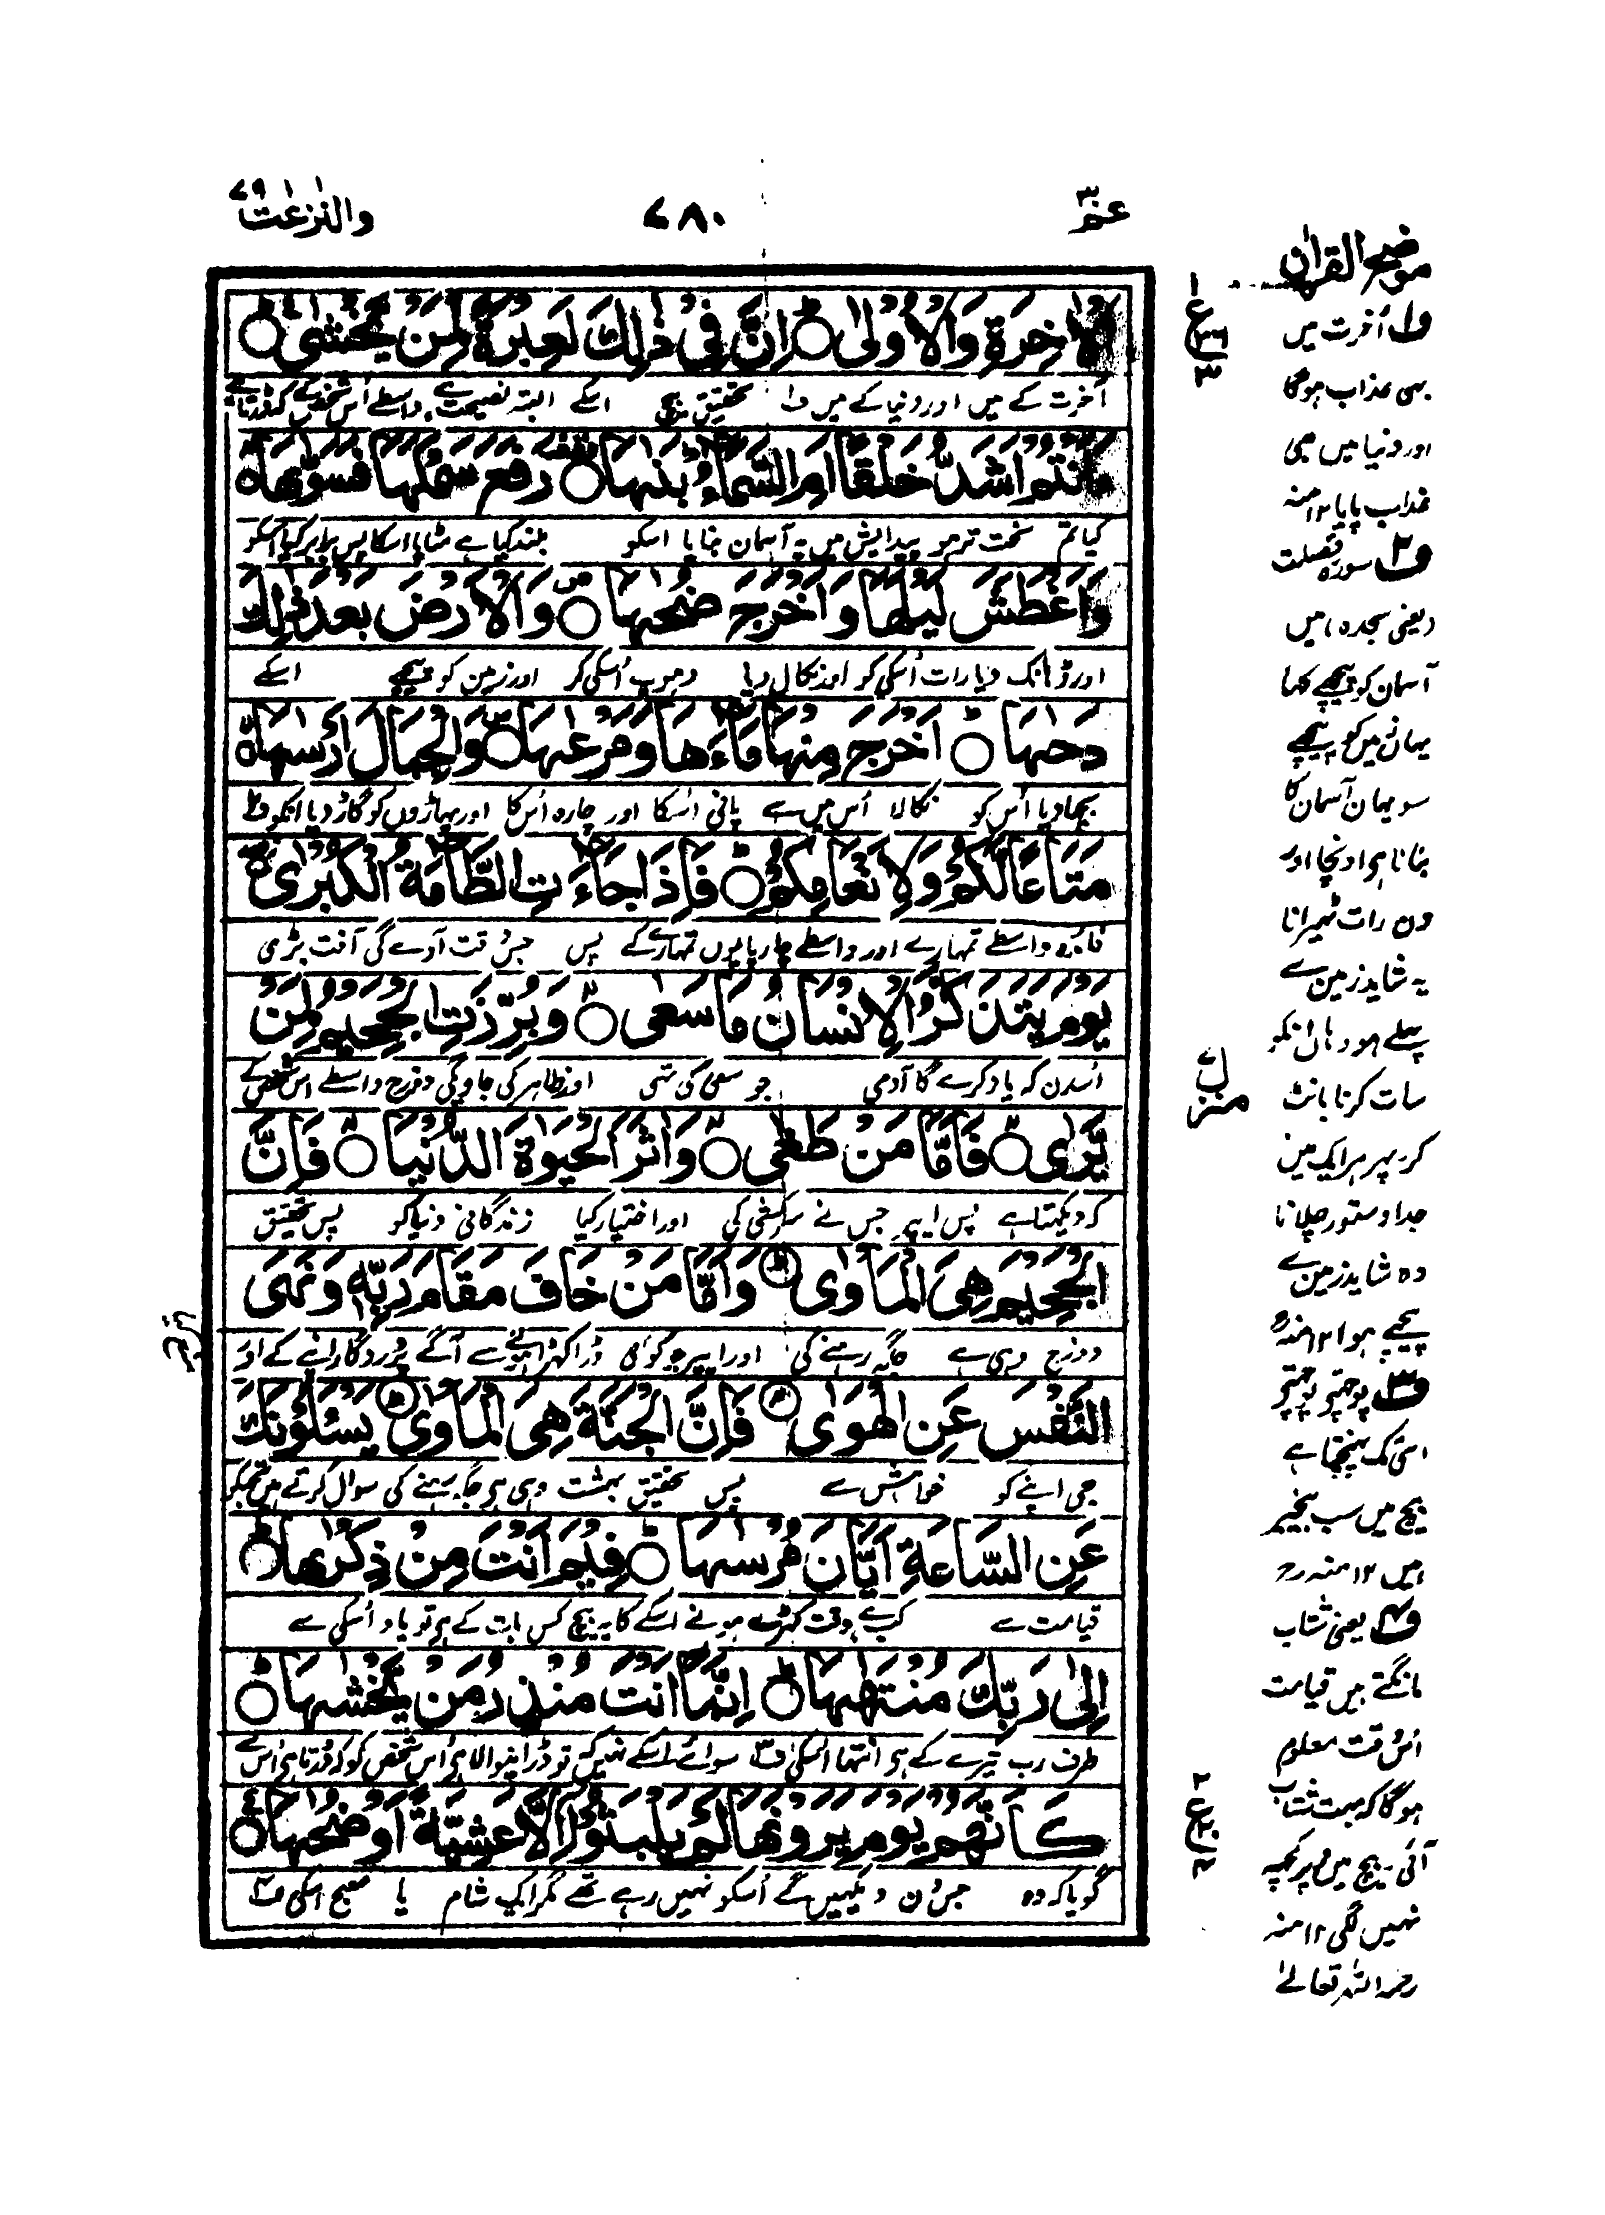 عم ۳۰
۷۸۰
والنزعت ۷۹
الْاٰخِرَةِ وَالْاُوْلٰى ؕ اِنَّ فِيْ ذٰلِكَ لَعِبْرَةً لِّمَنْ يَّخْشٰى ؕ
آخرت کے میں اور دنیا کے میں ف۱ تحقیق بیچ اسکے البتہ نصیحت ہے واسطے اُس شخص کے کہ ڈرتا ہے
ءَاَنْتُمْ اَشَدُّ خَلْقًا اَمِ السَّمَآءُ ؕ بَنٰىهَا ۟ رَفَعَ سَمْكَهَا فَسَوّٰىهَا ۙ
کیا تم سخت تر ہو پیدایش میں یہ آسمان بنایا اسکو بلند کیا ہے مٹاپا اسکا پس برابر کیا اسکو
وَاَغْطَشَ لَيْلَهَا وَاَخْرَجَ ضُحٰىهَا ۪ وَالْاَرْضَ بَعْدَ ذٰلِكَ
اور ڈھانک دیا رات اُسکی کو اور نکال دیا دھوپ اُسکی کو اور زمین کو پیچھے اسکے
دَحٰىهَا ؕ اَخْرَجَ مِنْهَا مَآءَهَا وَمَرْعٰىهَا ۪ وَالْجِبَالَ اَرْسٰىهَا ۙ
بچھا دیا اُس کو نکالا اُس میں سے پانی اُسکا اور چارہ اُس کا اور پہاڑوں کو گاڑ دیا انکو ف۲
مَتَاعًا لَّكُمْ وَلِاَنْعَامِكُمْ ؕ فَاِذَا جَآءَتِ الطَّآمَّةُ الْكُبْرٰى ۖ
فائدہ واسطے تمہارے اور واسطے چارپایوں تمہارے کے پس جس وقت آوے گی آفت بڑی
يَوْمَ يَتَذَكَّرُ الْاِنْسَانُ مَا سَعٰى ۙ وَبُرِّزَتِ الْجَحِيْمُ لِمَنْ
اُسدن کہ یاد کرے گا آدمی جو سعی کی تھی اور ظاہر کی جاویگی دوزخ واسطے اس شخص کے
يَّرٰى ۙ فَاَمَّا مَنْ طَغٰى ۙ وَاٰثَرَ الْحَيٰوةَ الدُّنْيَا ۙ فَاِنَّ
کہ دیکھتا ہے پس اپیر جس نے سرکشی کی اور اختیار کیا زندگانی دنیا کو پس تحقیق
الْجَحِيْمَ هِيَ الْمَاْوٰى ؕ وَاَمَّا مَنْ خَافَ مَقَامَ رَبِّهٖ وَنَهَى
دوزخ وہی ہے جگہ رہنے کی اور اپیر جو کوئی ڈرا کھڑے ہونے سے آگے پروردگار اپنے کے اور
النَّفْسَ عَنِ الْهَوٰى ۙ فَاِنَّ الْجَنَّةَ هِيَ الْمَاْوٰى ؕ يَسْـَٔلُوْنَكَ
جی اپنے کو خواہش سے پس تحقیق بہشت وہی ہی جگہ رہنے کی سوال کرتے ہیں تجھکو
عَنِ السَّاعَةِ اَيَّانَ مُرْسٰىهَا ؕ فِيْمَ اَنْتَ مِنْ ذِكْرٰىهَا ؕ
قیامت سے کب ہے وقت کھڑے ہونے اسکے کا بیچ کس بات کے ہی تو یاد اُسکی سے
اِلٰى رَبِّكَ مُنْتَهٰىهَا ؕ اِنَّمَآ اَنْتَ مُنْذِرُ مَنْ يَّخْشٰىهَا ؕ
طرف رب تیرے کے ہی انتہا اُسکی ف۳ سوائے اسکے نہیں کہ تو ڈرانیوالا ہی اُس شخص کو کہ ڈرتا ہی اُس سے
كَاَنَّهُمْ يَوْمَ يَرَوْنَهَا لَمْ يَلْبَثُوْٓا اِلَّا عَشِيَّةً اَوْ ضُحٰىهَا ۧ
گویا کہ وہ جس دن دیکھیں گے اُسکو نہیں رہے تھے مگر ایک شام یا صبح اسکی ف۴
موضح القرآن
ف۱ آخرت میں
بھی عذاب ہوگا
اور دنیا میں بھی
عذاب پایا ۱۲منہ
ف۲ سورہ فصلت
(یعنی سجدہ) میں
آسمان کو پیچھے کہا
یہاں زمین کو پیچھے
سو یہاں آسمان کا
بنانا ہی اونچا اور
دن رات ٹھہرانا
یہ شاید زمین سے
پہلے ہو وہاں انکو
سات کرنا بانٹ
کر پھر ہر ایک میں
جدا دستور چلانا
وہ شاید زمین سے
پیچھے ہوا ۱۲منہ
ف۳ پوچھتے پوچھتے
اسی تک پہنچتا ہے
بیچ میں سب بیخبر
ہیں ۱۲ منہ رح
ف۴ یعنی شتاب
مانگتے ہیں قیامت
اُس وقت معلوم
ہوگا کہ بہت شتاب
آئی بیچ میں دیر کچھ
نہیں لگی ۱۲ منہ
رحمہ اللہ تعالیٰ
ع
۳
منزل
۲
ع